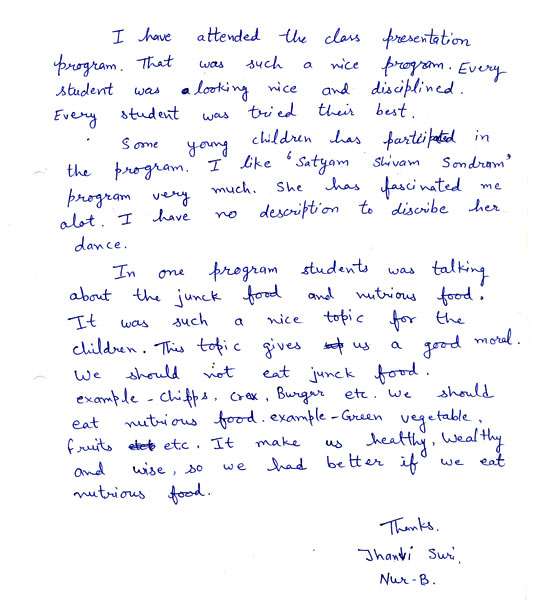 I have attended the class presentation
program. That was such a nice program. Every
student was a looking nice and disciplined.
Every student was tried their best.
Some young children has particpated in
the program. I like 'Satyam Shivam Sondrom'
program very much. She has fascinated me
alot. I have no description to discribe her
dance.
In one program students was talking
about the junck food and nutrious food.
It was such a nice topic for the
children. This topic gives us a good moral.
We should not eat junck food.
example - Chipps, Crex, Burger etc. We should
eat nutrious food. example - Green vegetable,
fruits etc. It make us healthy, Wealthy
and wise, so we had better if we eat
nutrious food.
Thanks.
Jhanvi Suri.
Nur-B.